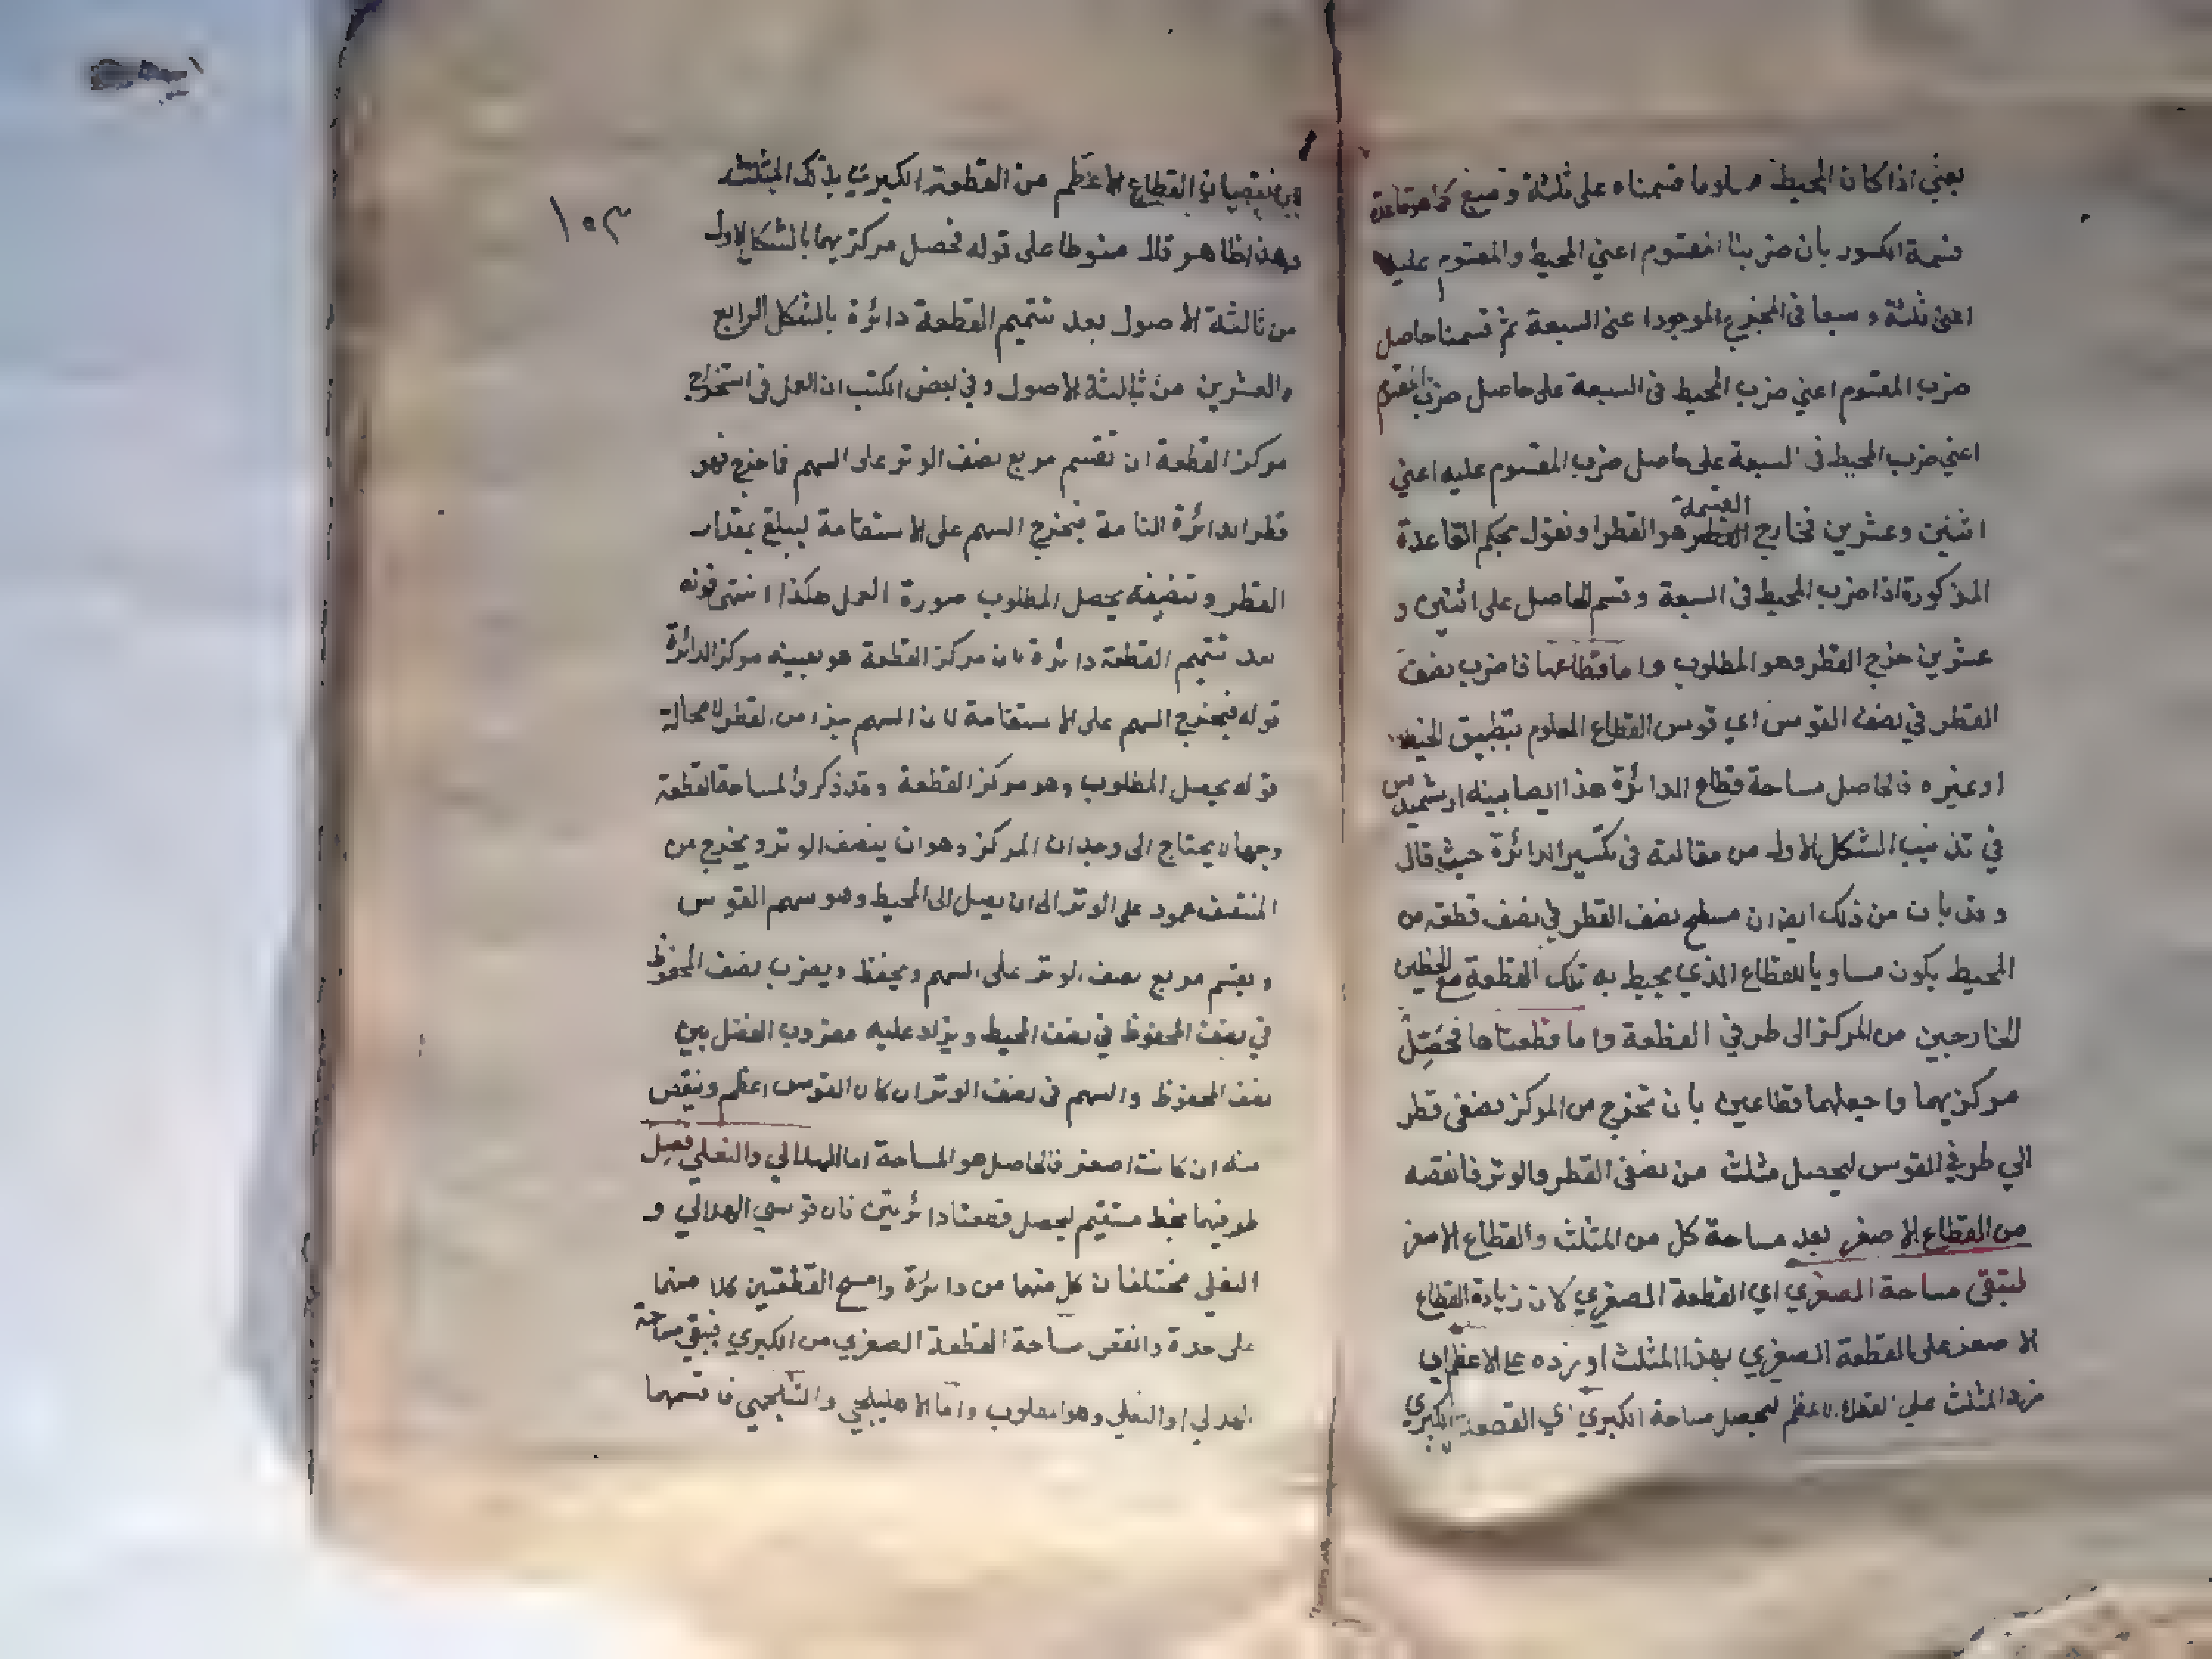 يعني اذا كان المحيط معلوما قسمناه على ثلثة و سبع كما هو قاعدة
قسمة الكسور بان ضربنا المقسوم اعني المحيط والمقسوم عليه
اعني ثلثة و سبعا في المخرج الموجود اعني السبعة ثم قسمنا حاصل
ضرب المقسوم اعني ضرب المحيط في السبعة على حاصل ضرب المقسوم
اعني ضرب المحيط في السبعة على حاصل ضرب المقسوم عليه اعني
اثنين وعشرين فخارج القسمة هو القطر او نقول بحكم القاعدة
المذكورة اذا ضرب المحيط في السبعة و قسم الحاصل على اثنين و
عشرين خرج القطر وهو المطلوب واما قطاعها فاضرب نصف
القطر في نصف القوس اي قوس القطاع المعلوم بتطبيق الخيط
او غيره فالحاصل مساحة قطاع الدائرة هذا ايضا بينه ارشميدس
في تذنيب الشكل الاول من مقالته في تكسير الدائرة حيث قال
وقد بان من ذلك ايضا ان مسطح نصف القطر في نصف قطعة من
المحيط يكون مساويا للقطاع الذي يحيط به تلك القطعة مع الخطين
الخارجين من المركز الى طرفي القطعة واما قطعتاها فحصل
مركزيهما واجعلهما قطاعين بان تخرج من المركز نصفى قطر
الي طرفي القوس ليحصل مثلث من نصفى القطر والوتر فانقصه
من القطاع الاصغر بعد مساحة كل من المثلث والقطاع الاصغر
لتبقى مساحة الصغري اي القطعة الصغري لان زيادة القطاع
الاصغر على القطعة الصغري بهذا المثلث او زده على الاعظم اي
زد المثلث على القطاع الاعظم ليحصل مساحة الكبري اي القطعة الكبري
لان نقصان القطاع الاعظم من القطعة الكبري بذلك المثلث
وهذا ظاهر قال منوطا على قوله فحصل مركزيهما بالشكل الاول
من ثالثة الاصول بعد تتميم القطعة دائرة بالشكل الرابع
والعشرين من ثالثة الاصول وفي بعض الكتب ان العمل في استخراج
مركز القطعة ان تقسم مربع نصف الوتر على السهم فما خرج فهو
قطر الدائرة التامة فيخرج السهم على الاستقامة ليبلغ بمقدار
القطر وتنصيفه يحصل المطلوب صورة العمل هكذا انتهى قوله
بعد تتميم القطعة دائرة فان مركز القطعة هو بعينه مركز الدائرة
قوله فيخرج السهم على الاستقامة لان السهم جزء من القطر لا محالة
قوله يحصل المطلوب وهو مركز القطعة وقد ذكروا لمساحة القطعة
وجها لا يحتاج الى وجدان المركز وهو ان ينصف الوتر ويخرج من
المنتصف عمود على الوتر الى ان يصل الى المحيط وهو سهم القوس
ويقسم مربع نصف الوتر على السهم ويحفظ ويضرب نصف المحفوظ
في نصف المحفوظ في نصف المحيط ويزاد عليه مضروب الفضل بين
نصف المحفوظ والسهم في نصف الوتر ان كان القوس اعظم وينقص
منه ان كانت اصغر فالحاصل هو المساحة اما الهلالي والنعلي فصل
طرفيهما بخط مستقيم ليحصل قطعتا دائرتين فان قوسي الهلالي و
النعلي مختلفان كل منهما من دائرة وامسح القطعتين كلا منهما
على حدة وانقص مساحة القطعة الصغري من الكبري فيبقى مساحة
الهلالي او النعلي وهو المطلوب واما الاهليلجي والشلجمي فاقسمهما
١٥٣